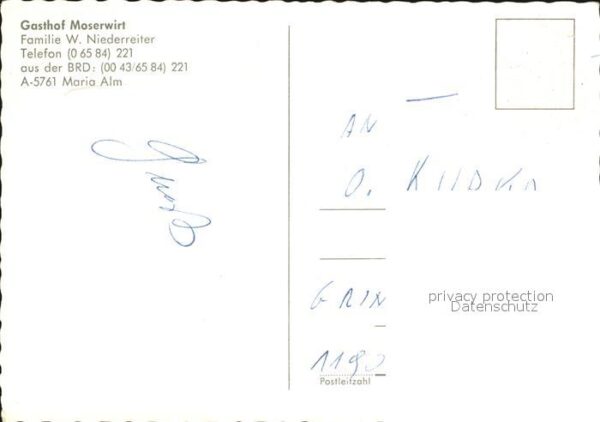 Gasthof Moserwirt
Familie W. Niederreiter
Telefon (0 65 84) 221
aus der BRD: (00 43/65 84) 221
A-5761 Maria Alm
AN
O. KUDKA
GRIN
1190
Postleitzahl
privacy protection
Datenschutz